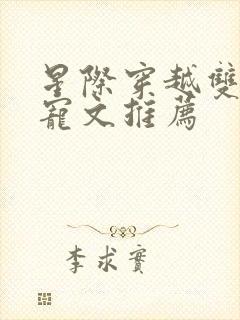 星際穿越雙
寵文推薦
李求實